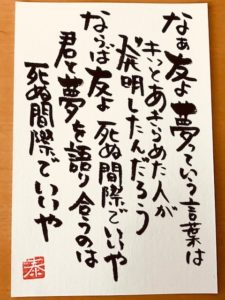 なぁ友よ夢っていう言葉は
きっとあきらめた人が
発明したんだろう
ならば友よ 死ぬ間際でいいや
君と夢を語り合うのは
死ぬ間際でいいや
泰